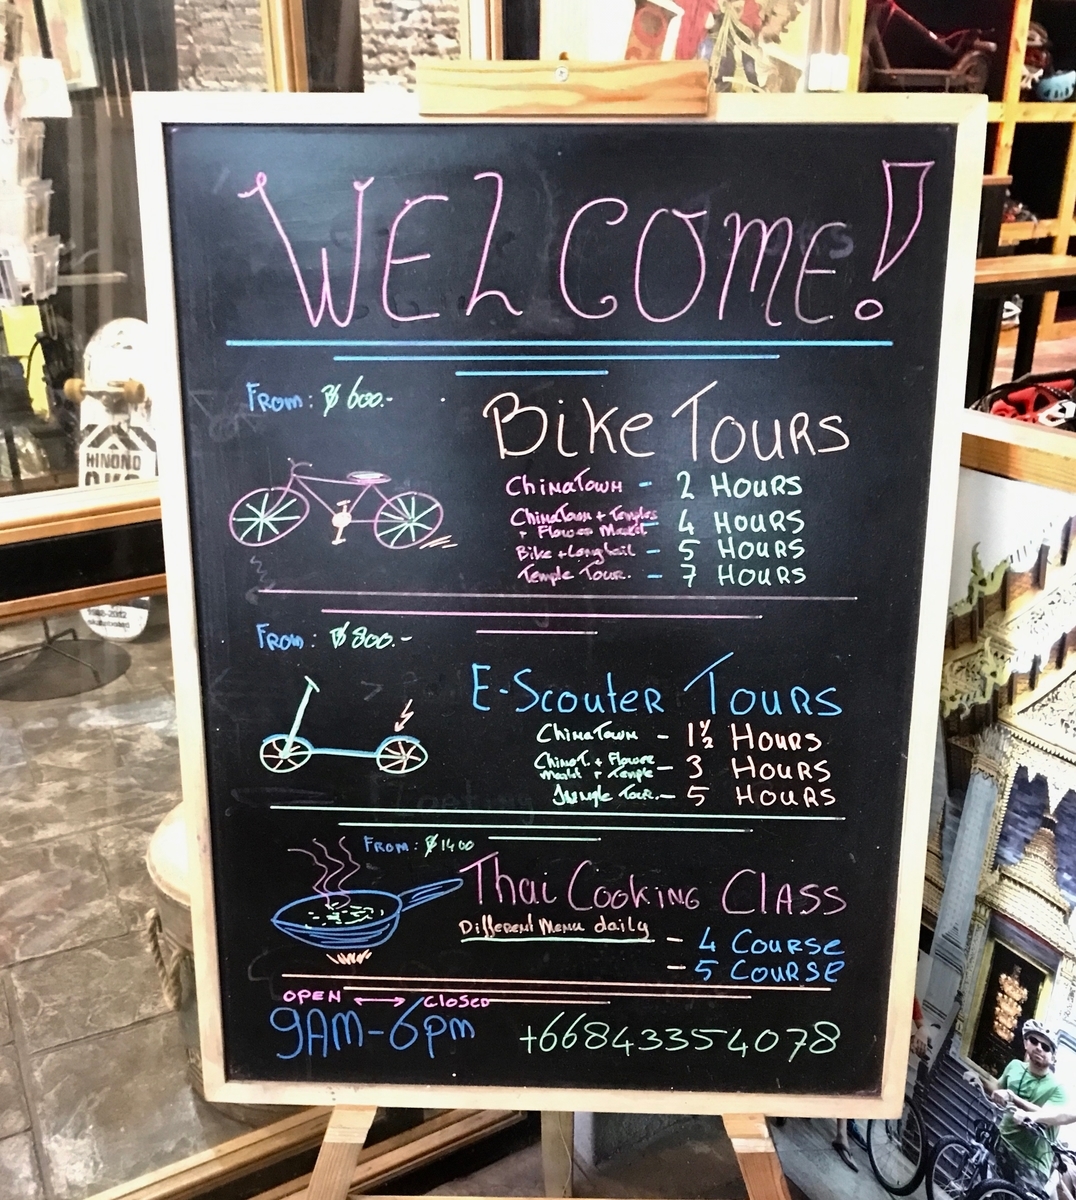 WELCOME!
FROM: ฿ 600.-
Bike Tours
ChinaTown - 2 Hours
ChinaTown + Temples + Flower Market - 4 Hours
Bike + Longtail - 5 Hours
Temple Tour. - 7 Hours
FROM: ฿ 800.-
E-Scouter Tours
ChinaTown - 1½ Hours
ChinaT. + Flower Market + Temple - 3 Hours
Jungle Tour. - 5 Hours
FROM: ฿ 1400
Thai Cooking Class
Different Menu daily
- 4 Course
- 5 Course
OPEN ↔ / Closed
9AM-6pm
+66843354078
HINONO